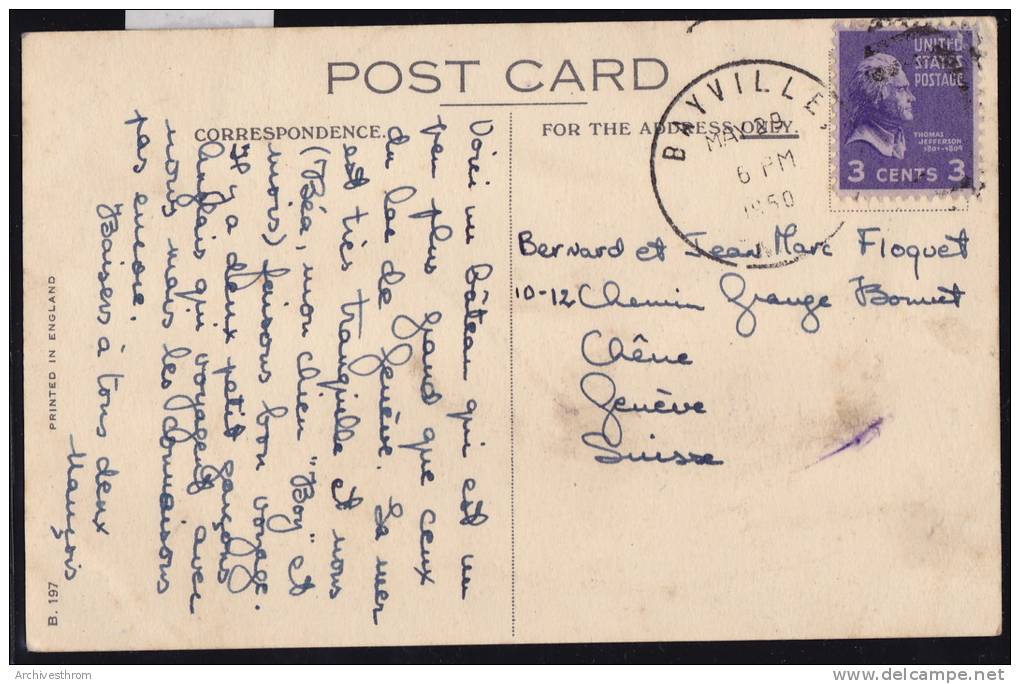 POST CARD
CORRESPONDENCE.
FOR THE ADDRESS ONLY.
BAYVILLE
MAY 29
6 PM
1950
UNITED
STATES
POSTAGE
THOMAS
JEFFERSON
1801-1809
3 CENTS 3
Voici un bâteau qui est un
peu plus grand que ceux
du lac de Genève. La mer
est très tranquille et nous
(Béa, mon chien "Boy" et
moi) faisons bon voyage.
Il y a deux petit garçons
Anglais qui voyagent avec
nous mais les
pas encore.
Baisers à tous deux
Bernard et Jean Marc Floquet
10-12 Chemin Grange Bonnet
Chêne
Genève
Suisse
PRINTED IN ENGLAND
B. 197
Archivesthrom
www.delcampe.net